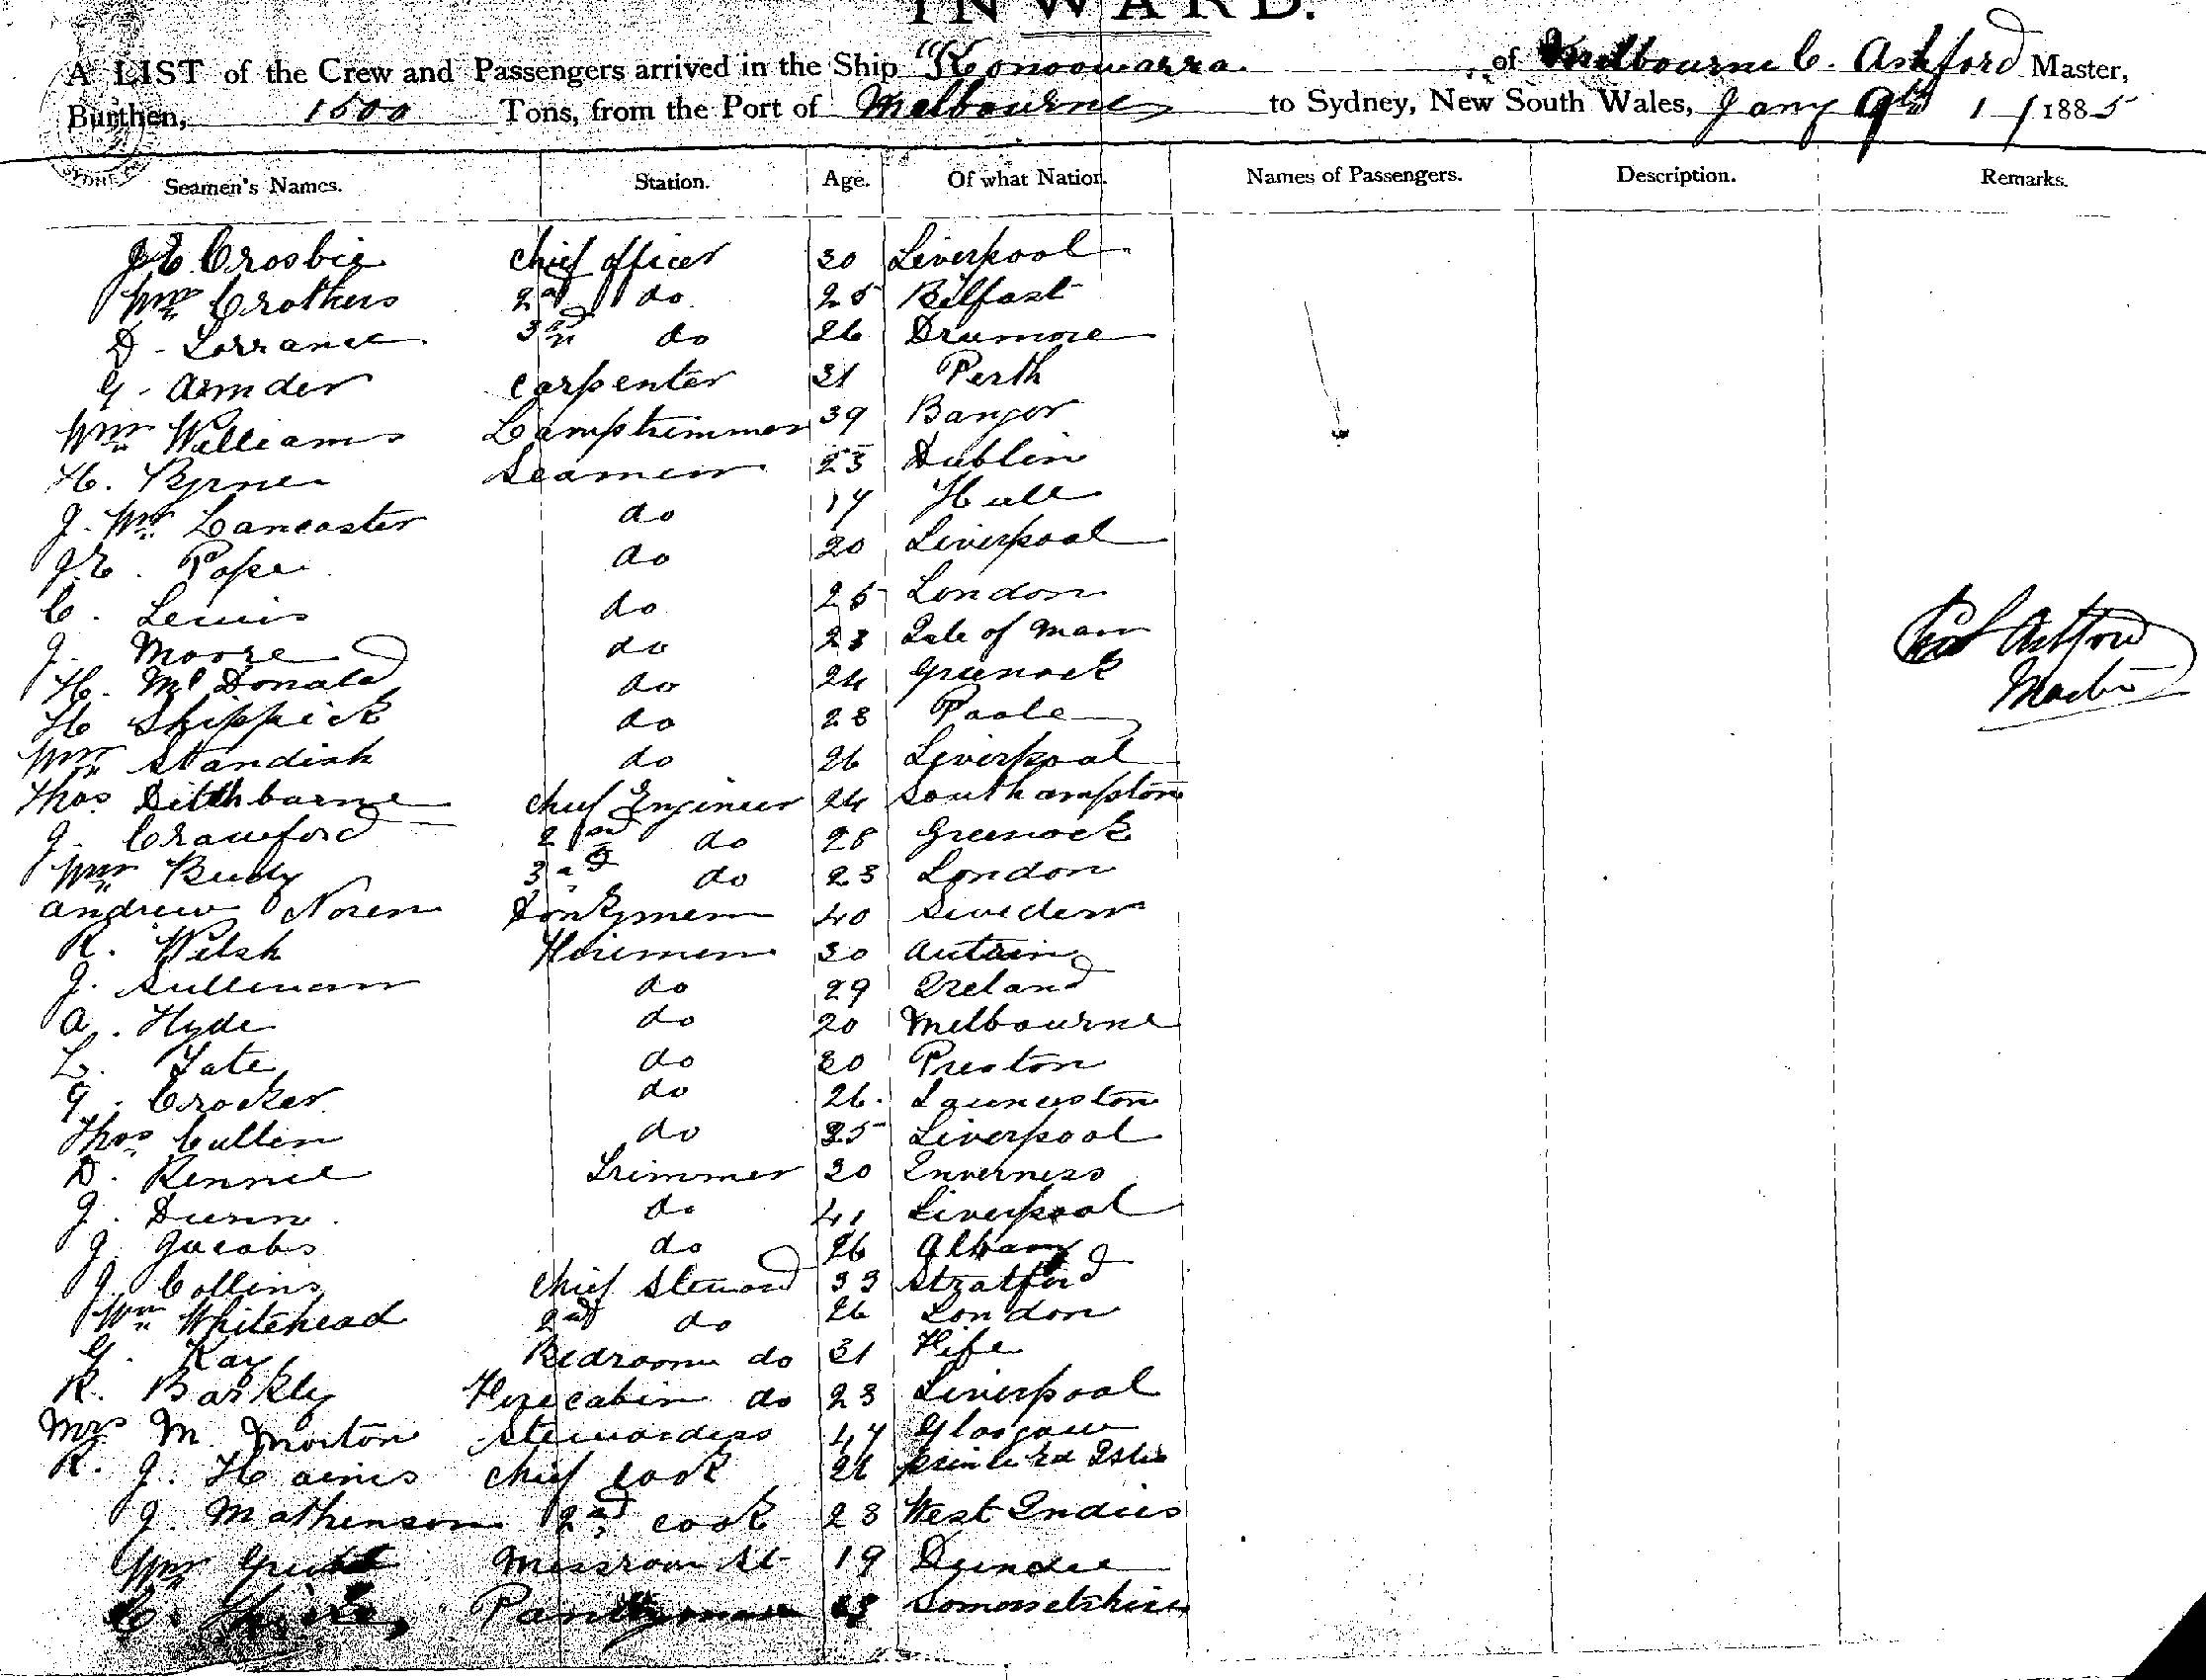 INWARD.
A LIST of the Crew and Passengers arrived in the Ship "Konoowarra of Melbourne C. Ashford Master,
Burthen, 1500 Tons, from the Port of Melbourne to Sydney, New South Wales, Jany 9th 1885
Seamen's Names. Station. Age. Of what Nation. Names of Passengers. Description. Remarks.
J E Crosbie chief officer 30 Liverpool
Wm Crothers 2nd do 25 Belfast
D - Lorrance 3rd do 26 Drumore
G - Armder carpenter 31 Perth
Wm Williams Lamptrimmer 39 Bangor
H. Byrne Seamen 23 Dublin
J. Wm Lancaster do 17 Hull
J E. Pope do 20 Liverpool
C. Lewis do 25 London
J. Moore do 23 Isle of Man
H. Mc Donald do 24 Greenock
H Shippick do 28 Poole
Wm Standish do 26 Liverpool
Thos Ditchburne chief Engineer 24 Southampton
J. Crawford 2nd do 28 Greenock
Wm do 23 London
Andrew Noren Donkymen 40 Sweden
R. Welsh Firemen 30
J. Sullivan do 29 Ireland
A. Hyde do 20 Melbourne
L. Tate do 30 Preston
G. Crocker do 26. Launceston
Thos Cullen do 25 Liverpool
D. Rennie Trimmer 30 Inverness
J. Dunn do 41 Liverpool
J. Jacobs do 26 Albany
J. Collins Chief Steward 33 Stratford
Wm Whitehead 2nd do 26 London
G. Kay Bedroom do 31 Fife
R. Barkly Forecabin do 23 Liverpool
Mrs M. Morton Stewardess 47 Glasgow
R. J. Haines chief cook 26
J. Mathenson 2nd cook 23 West Indies
Wm Messroom St 19 Dundee
C. Pantryman Somersetshire
Ashford
Master